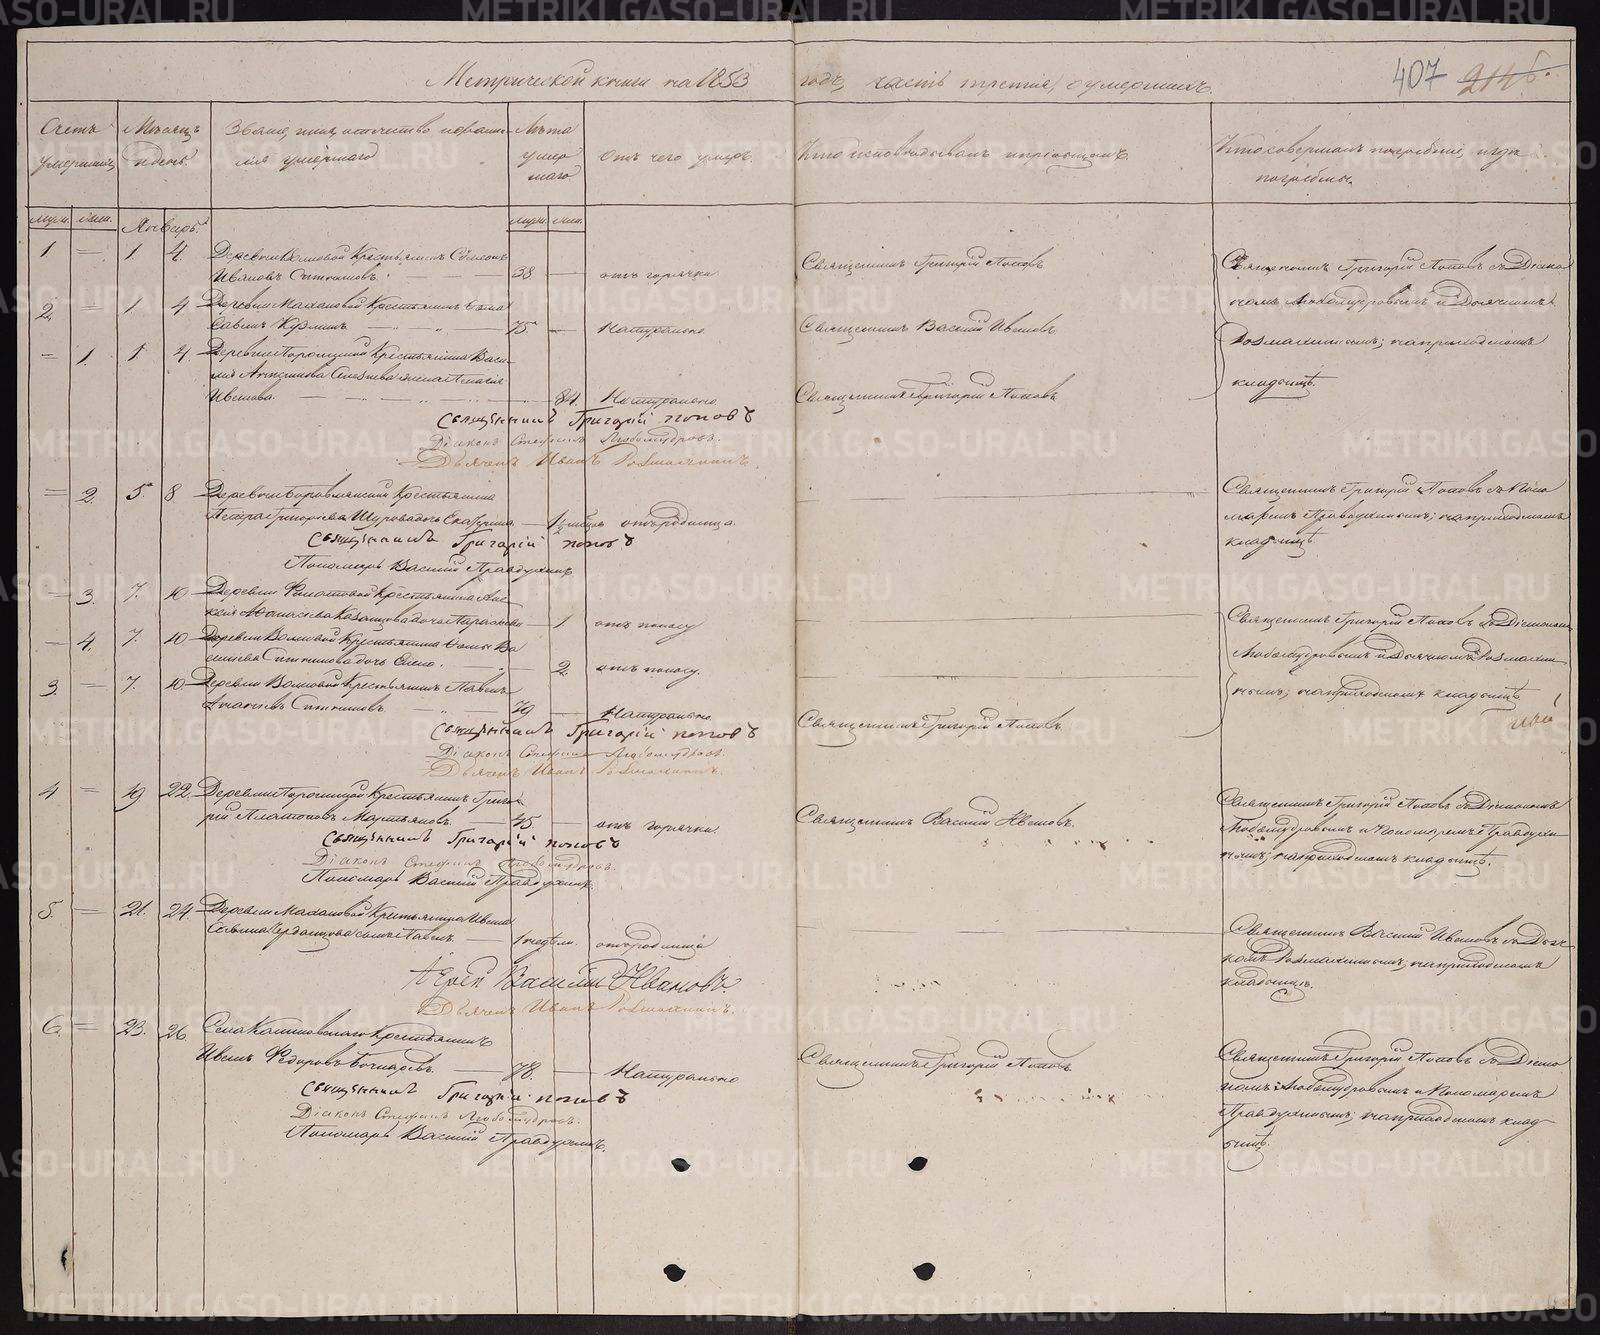 Метрической книги на 1853 годъ, часть третия, о умершихъ.
407
214 б.
Счетъ умершихъ
Мѣсяцъ и день
Званіе, имя, отчество и фамилія умершаго
Лѣта умершаго
Отъ чего умеръ
Кто исповѣдывалъ и пріобщалъ.
Кто совершалъ погребеніе, и гдѣ погребены.
муж. жен.
Январь
муж. жен.
1 — 1 4. Деревни Волковой Крестьянинъ
Ивановъ Ситниковъ. — 38 — отъ горячки
Священникъ Григорій Поповъ
Священникъ Григорій Поповъ съ Діако
номъ Любомудровымъ и Дьячкомъ
2. — 1 4 Деревни Махановой Крестьянинъ
— 75 — Натурально
Священникъ Василій Ивановъ
на приходскомъ
кладбищѣ.
— 1. 1 4 Деревни Крестьянина Васи-
жена
Иванова. — 84 Натурально
Священникъ Григорій Поповъ
Священникъ Григорій Поповъ
Діаконъ Стефанъ Любомудровъ.
Дьячекъ Иванъ
— 2. 5. 8 Деревни Крестьянина
Петра Григорьева дочь Екатерина — отъ родимца.
Священникъ Григорій Поповъ съ Поно
маремъ Правдухинымъ; на приходскомъ
кладбищѣ.
Священникъ Григорій Поповъ
Пономарь Василій Правдухинъ
— 3. 7. 10 Деревни Крестьянина Алек
сѣя Аѳанасьева Казанцова дочь Параскева — 1. отъ поносу
Священникъ Григорій Поповъ съ Діакономъ
Любомудровымъ и Дьячкомъ
на приходскомъ кладбищѣ
— 4. 7. 10 Деревни Волковой Крестьянина Ва
сильева Ситникова дочь Елена. — 2. отъ поносу.
3. — 7. 10 Деревни Волковой Крестьянинъ Павелъ
Игнатьевъ Ситниковъ — 79 — Натурально
Священникъ Григорій Поповъ
Священникъ Григорій Поповъ
Діаконъ Стефанъ Любомудровъ
Дьячекъ Иванъ
4 — 19 22 Деревни Крестьянинъ Григо
рій Платоновъ Мартьяновъ. — 45 — отъ горячки.
Священникъ Василій Ивановъ.
Священникъ Григорій Поповъ съ Діакономъ
Любомудровымъ и Пономаремъ Правдухи
нымъ; на приходскомъ кладбищѣ.
Священникъ Григорій Поповъ
Діаконъ Стефанъ Любомудровъ.
Пономарь Василій Правдухинъ.
5. — 21. 24 Деревни Махановой Крестьянина Ивана
сынъ Павелъ. — 1 недѣли. отъ родимца
Священникъ Василій Ивановъ съ Дьяч
комъ на приходскомъ
кладбищѣ.
Іерей Василій Ивановъ
Дьячекъ Иванъ
6. — 23. 26 Села Крестьянинъ
Иванъ Ѳедоровъ Бочкаревъ. — 78. — Натурально
Священникъ Григорій Поповъ
Священникъ Григорій Поповъ съ Діако
номъ Любомудровымъ и Пономаремъ
Правдухинымъ; на приходскомъ клад
бищѣ.
Священникъ Григорій Поповъ
Діаконъ Стефанъ Любомудровъ.
Пономарь Василій Правдухинъ.
METRIKI.GASO-URAL.RU